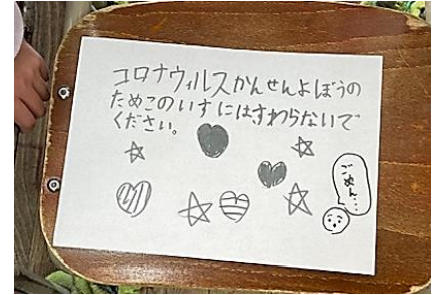 コロナウィルスかんせんよぼうの
ためこのいすにはすわらないで
ください。
ごめん...